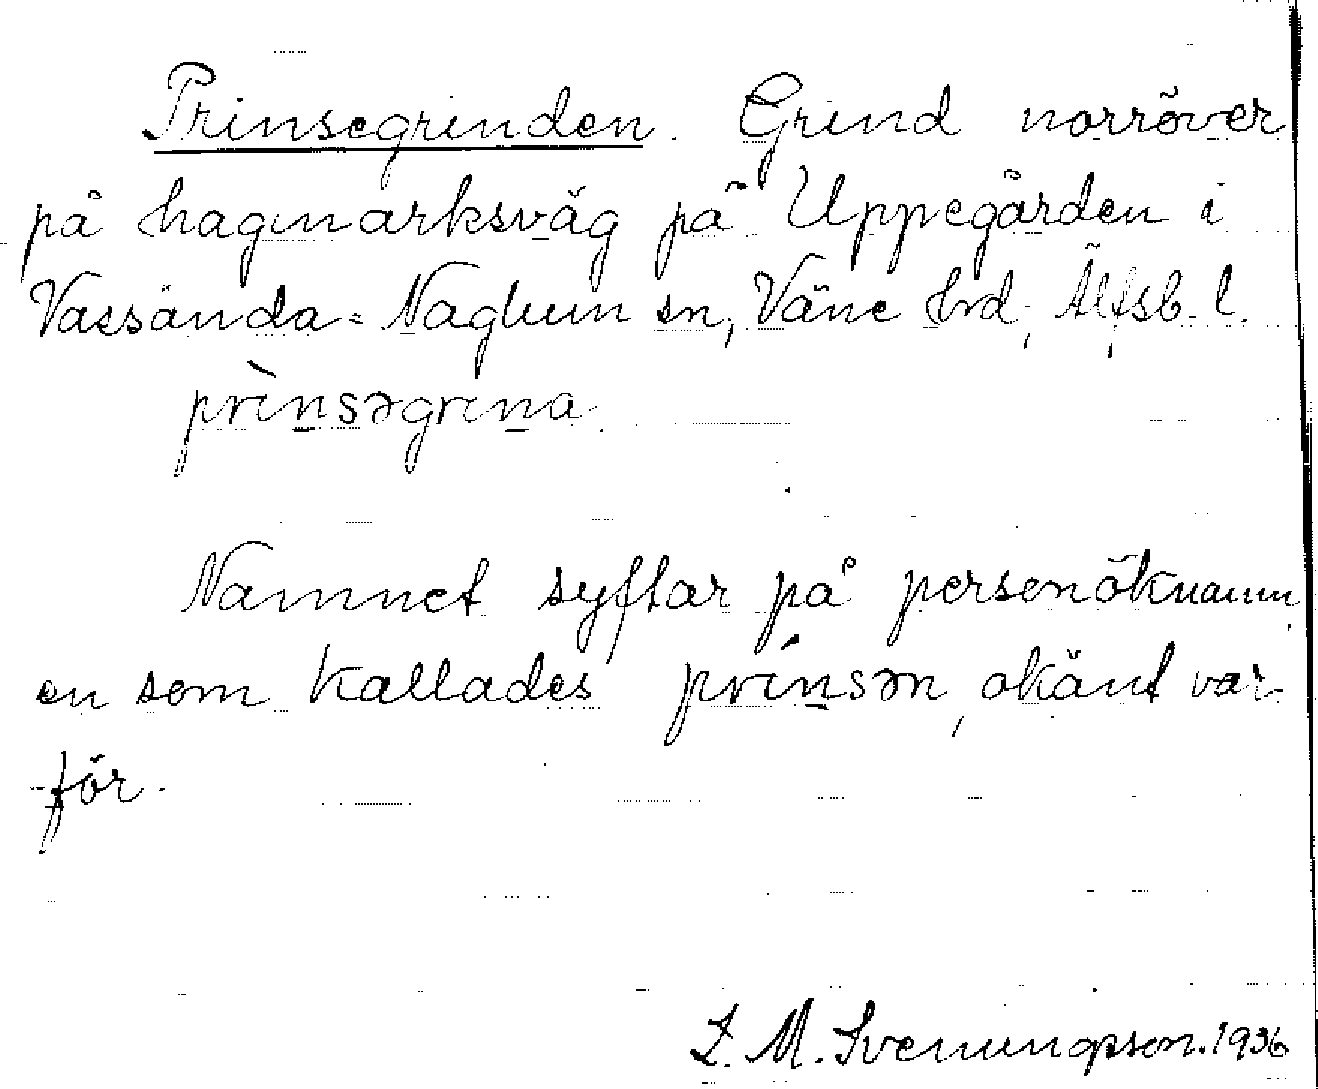 Prinsegrinden. Grind norröver
på hagmarksväg på Uppegården i
Vassända-Naglum sn, Väne hrd, Älfsb. l.
prìnsəgrina.
Namnet syftar på personöknamn,
en som kallades prínsən, okänt var-
för.
L. M. Svenungsson. 1936